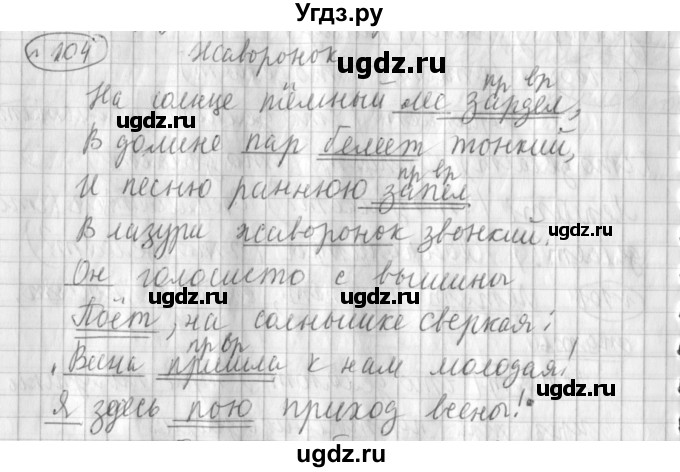 Угдз.ру
н 104
Жаворонок
ugdz.ru
пр вр
На солнце тёмный лес зардел,
ugdz.ru
В долине пар белеет тонкий,
ugdz.ru
пр вр
И песню раннюю запел
ugdz.ru
В лазури жаворонок звонкий.
ugdz.ru
Он голосисто с вышины
ugdz.ru
Поёт, на солнышке сверкая:
пр вр
Весна пришла к нам молодая!
ugdz.ru
Я здесь пою приход весны!